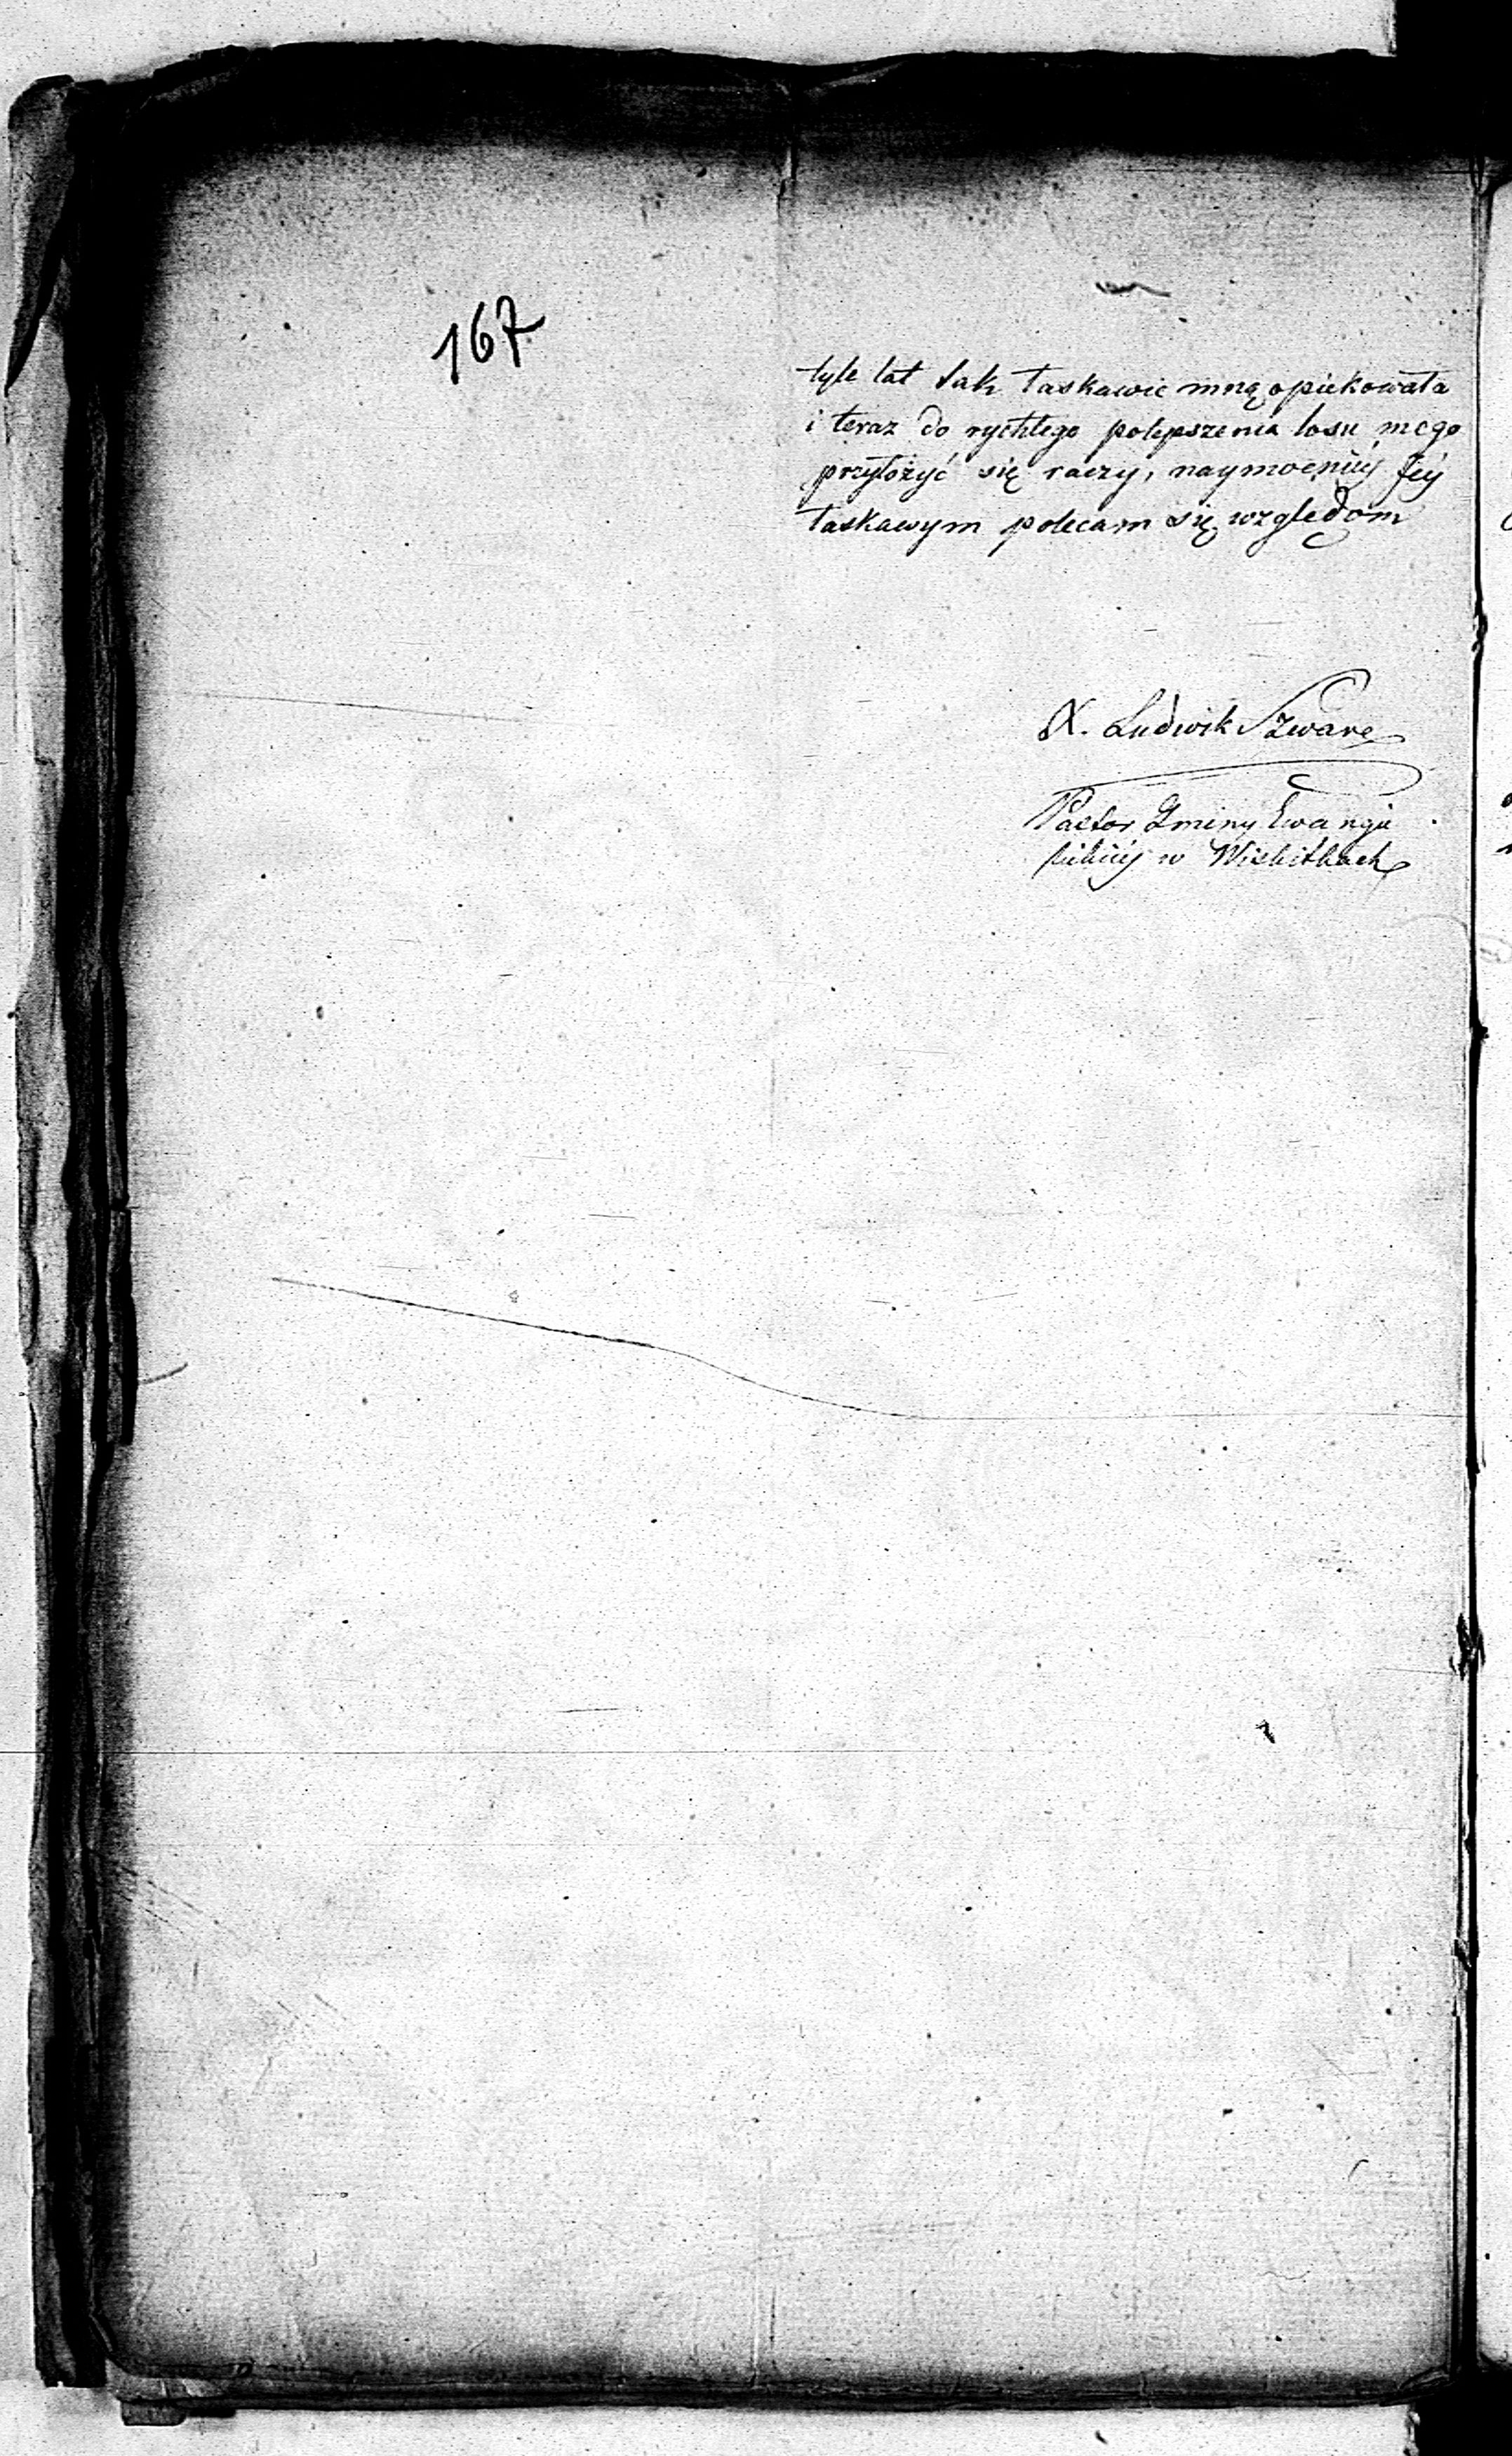 167
tyle lat tak łaskawie mną opiekowała
i teraz do rychłego polepszenia losu mego
przyłożyć się raczy, naymocniéj Jéj
łaskawym polecam się względom
X. Ludwik Szwarc
Pastor Gminy Ewangie
lickiéj w Wiskitkach